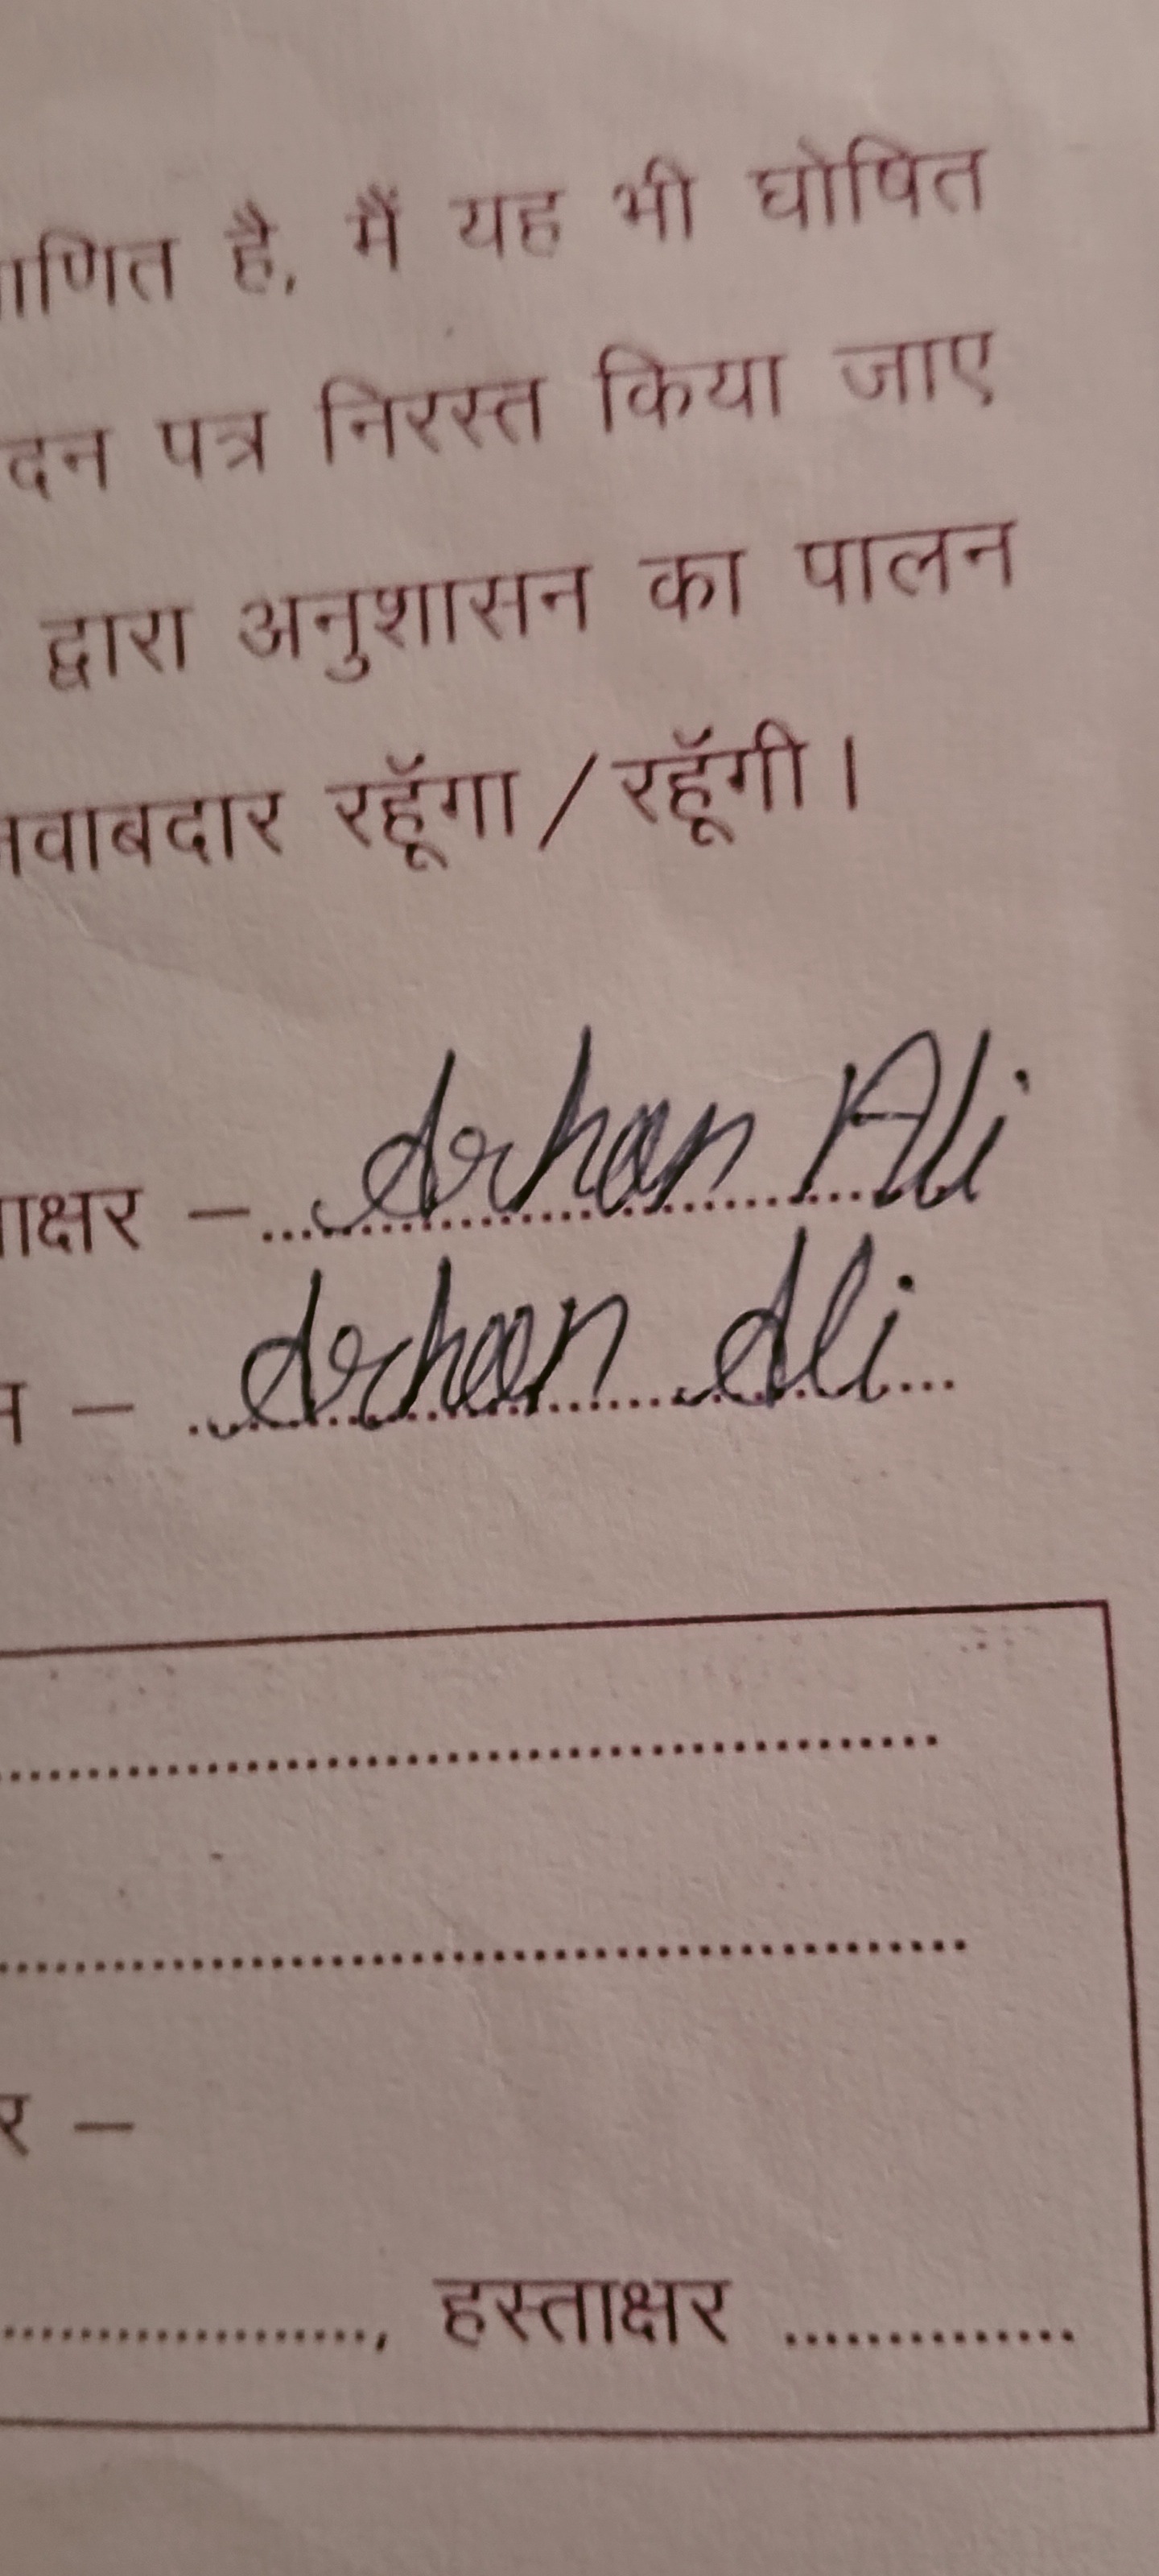 ाणित है, मैं यह भी घोषित
दन पत्र निरस्त किया जाए
द्वारा अनुशासन का पालन
वाबदार रहूॅंगा / रहूॅंगी ।
ाक्षर – Arhan Ali
– Arhan Ali
र –
, हस्ताक्षर